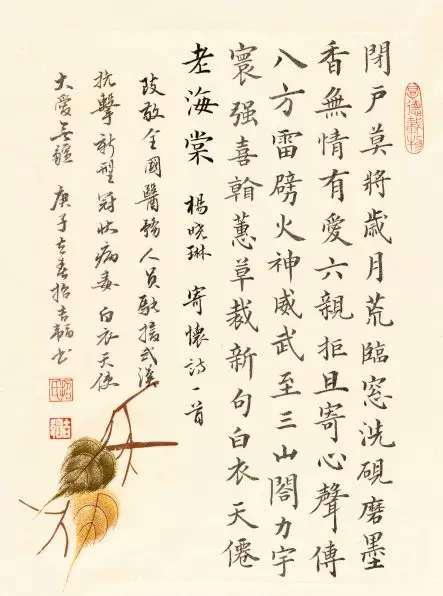 閉戸莫將歲月荒臨窓洗硯磨墨
香無情有愛六親拒且寄心聲傳
八方雷劈火神威武至三山閤力宇
寰强喜翰蕙草裁新句白衣天僊
老海棠 楊曉琳 寄懷詩一首
致敬全國醫務人員馳援武漢
抗擊新型冠狀病毒 白衣天使
大愛无疆 庚子立春